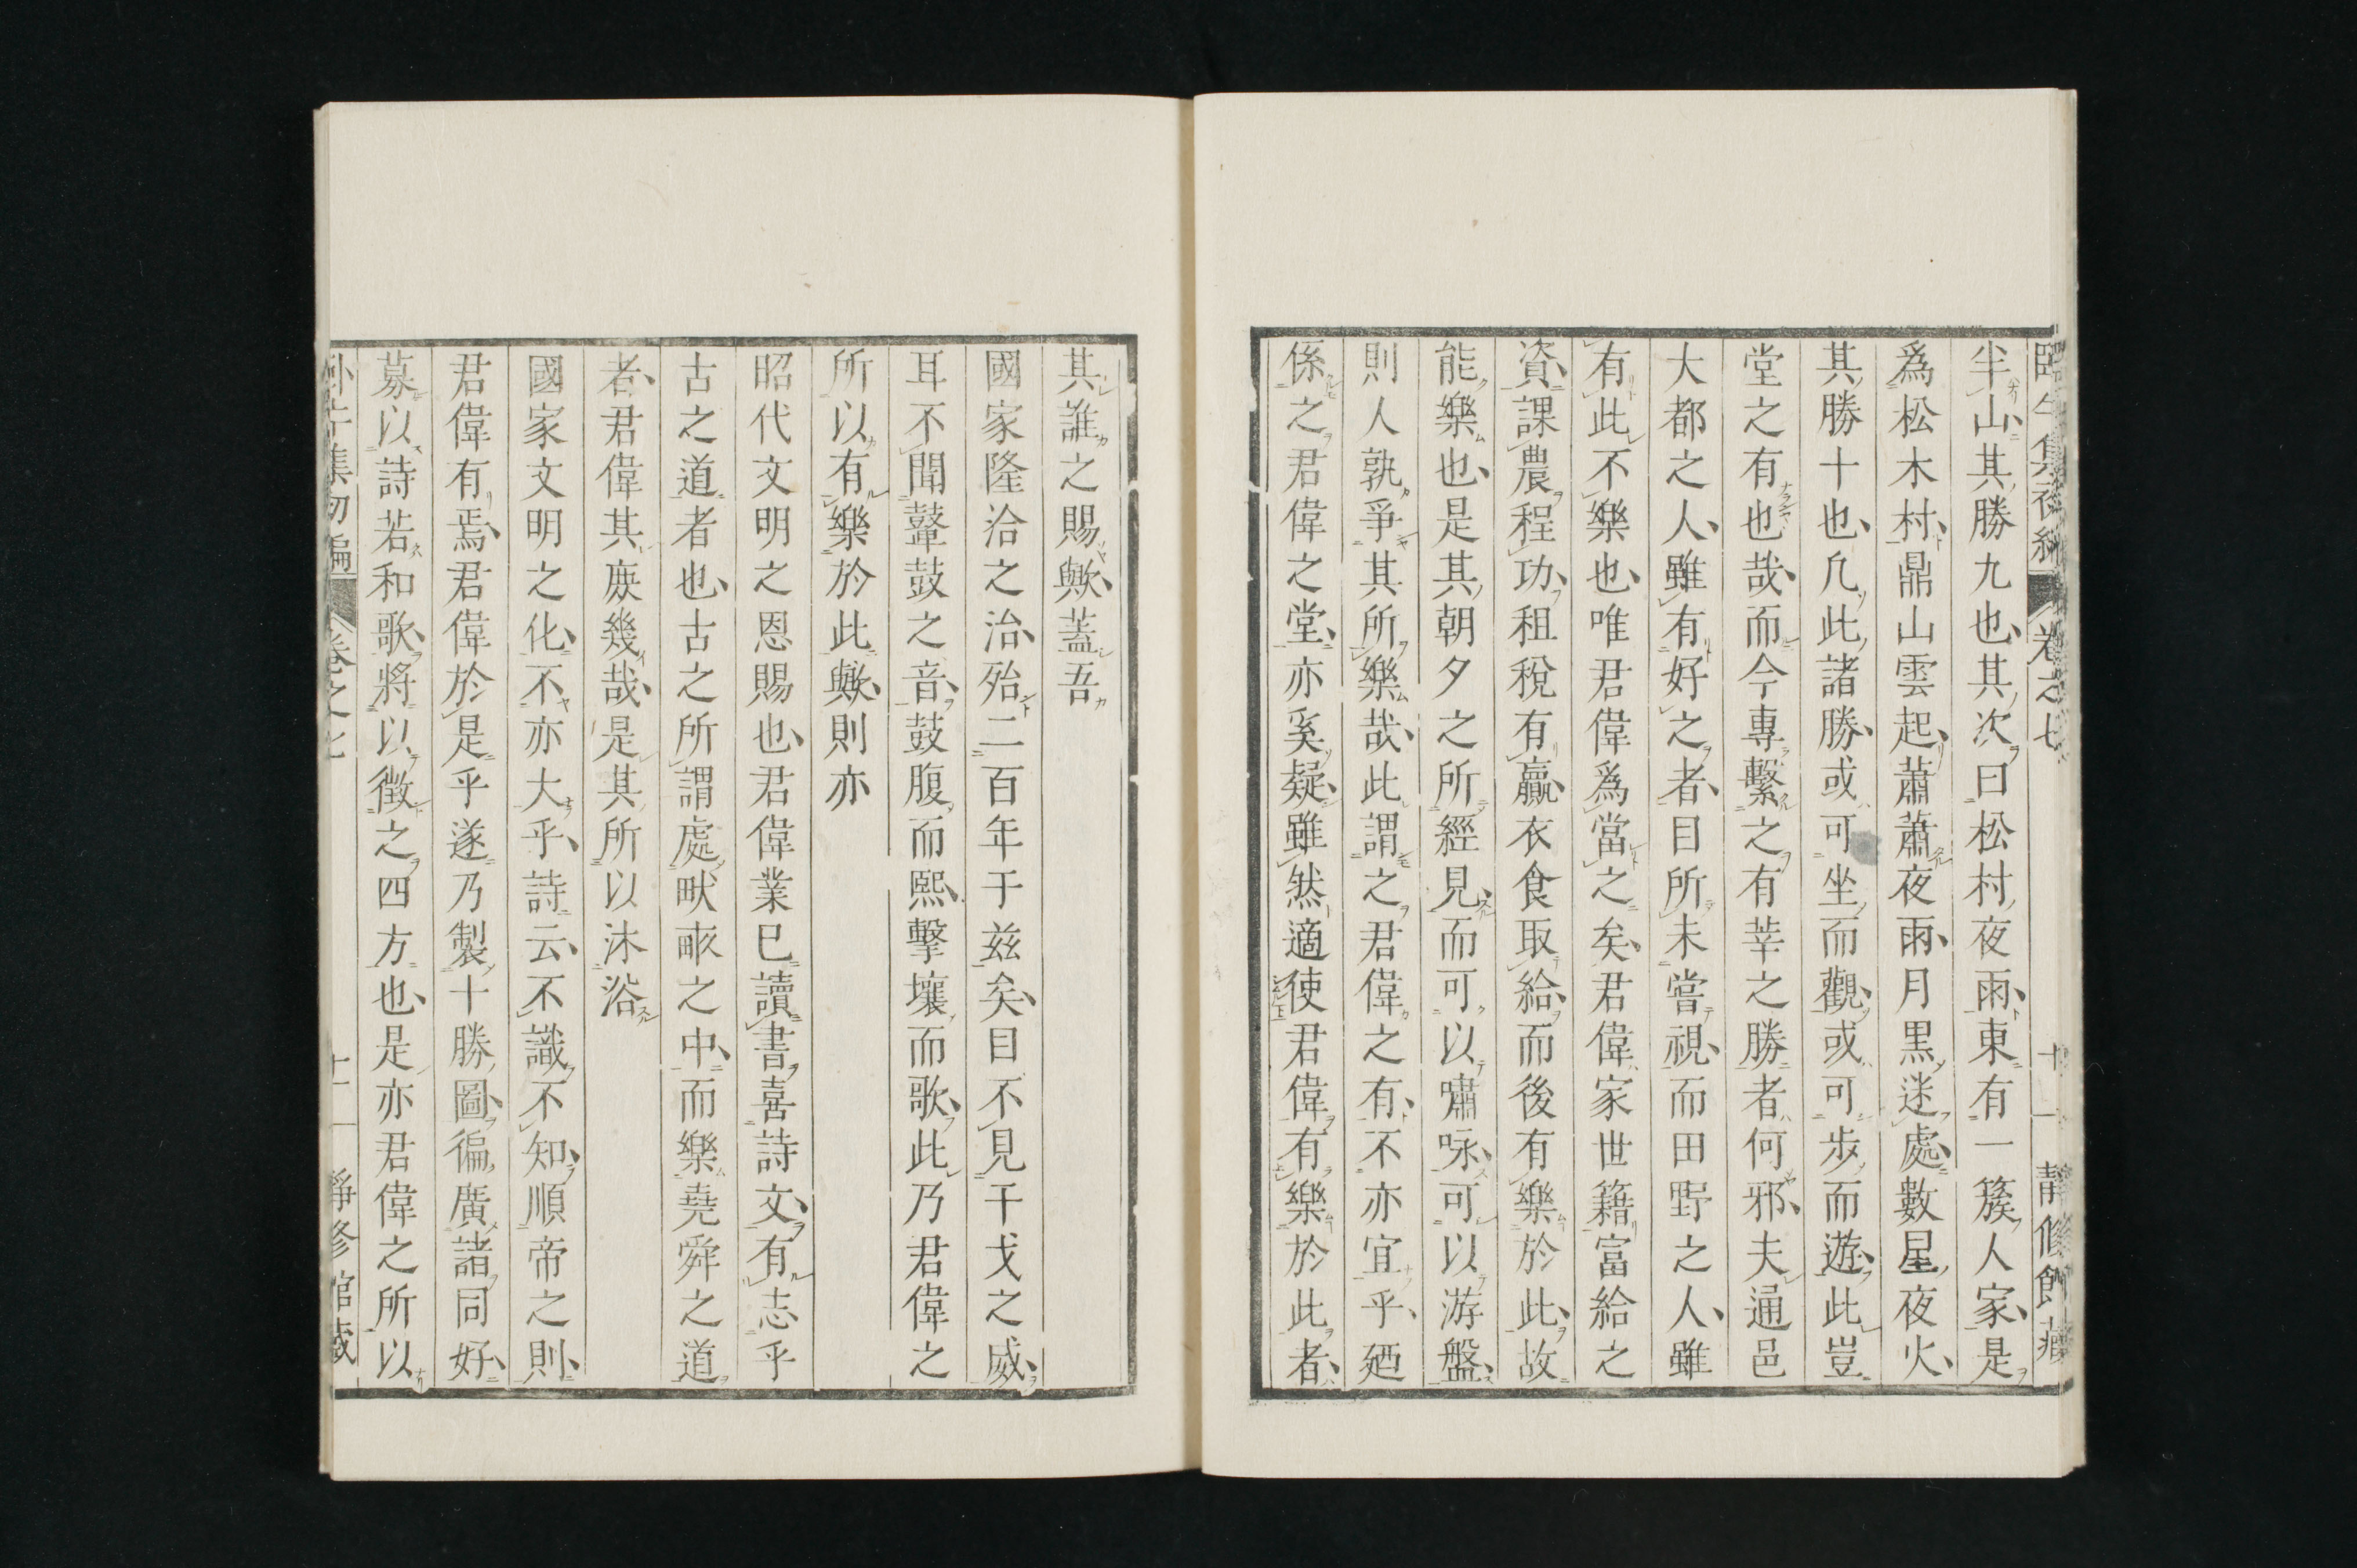 半山其勝九也其次曰松村夜雨東有一簇人家是
爲松木村鼎山雲起蕭蕭夜雨月黒迷處數星夜火
其勝十也凡此諸勝或可坐而觀或可歩而遊此豈
堂之有也哉而今專繋之有莘之勝者何邪夫通邑
大都之人雖有好之者目所未嘗視而田野之人雖
有此不樂也唯君偉爲當之矣君偉家世籍富給之
資課農程功租稅有贏衣食取給而後有樂於此故
能樂也是其朝夕之所經見而可以嘯咏可以游盤
則人孰爭其所樂哉此謂之君偉之有不亦宜乎廼
係之君偉之堂亦奚疑雖然適使君偉有樂於此者
其誰之賜歟蓋吾
國家隆洽之治殆二百年于兹矣目不見干戈之威
耳不聞鼙鼓之音鼓腹而熙擊壤而歌此乃君偉之
所以有樂於此歟則亦
昭代文明之恩賜也君偉業巳讀書喜詩文有志乎
古之道者也古之所謂處畎畝之中而樂堯舜之道
者君偉其庻幾哉是其所以沐浴
國家文明之化不亦大乎詩云不識不知順帝之則
君偉有焉君偉於是乎遂乃製十勝圖徧廣諸同好
募以詩若和歌將以徵之四方也是亦君偉之所以
卷之七
十一
靜修館藏